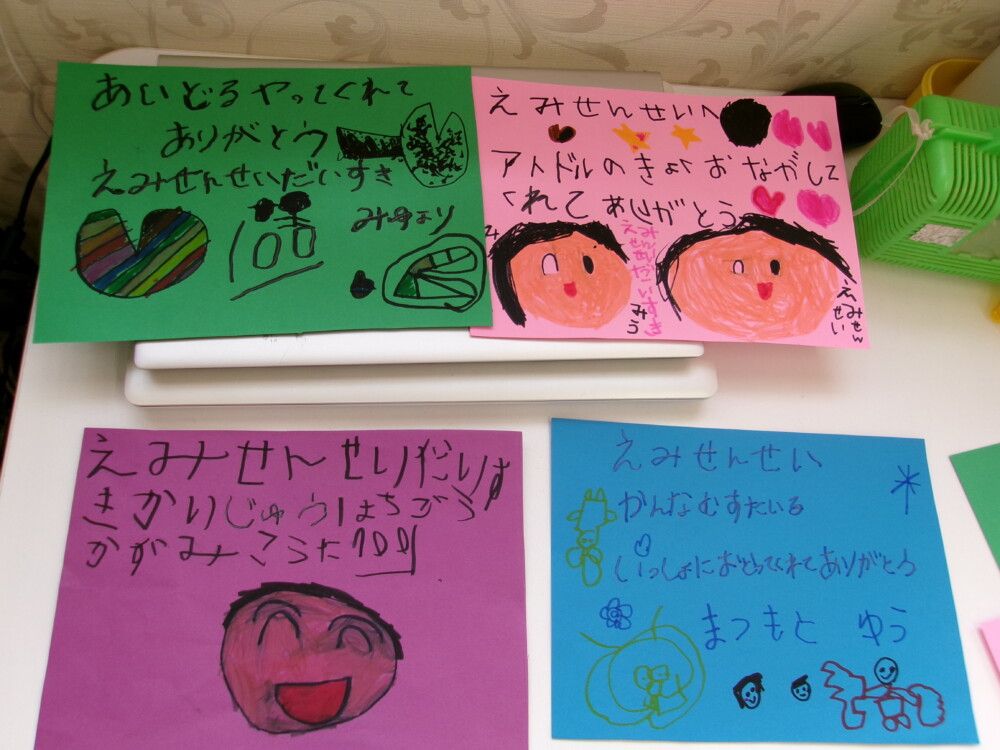 あいどるヤってくれて
ありがとう
えみせんせいだいすき
みゆより
えみせんせいへ
アトドルのきょくおながして
くれてありがとう
み
みう
えみせん
せい
えみせんせりだりす
きかりじゅうはちごう
かがみこうた
えみせんせい
かんなむすたいる
いっしょにおどってくれてありがとう
まつもと ゆう